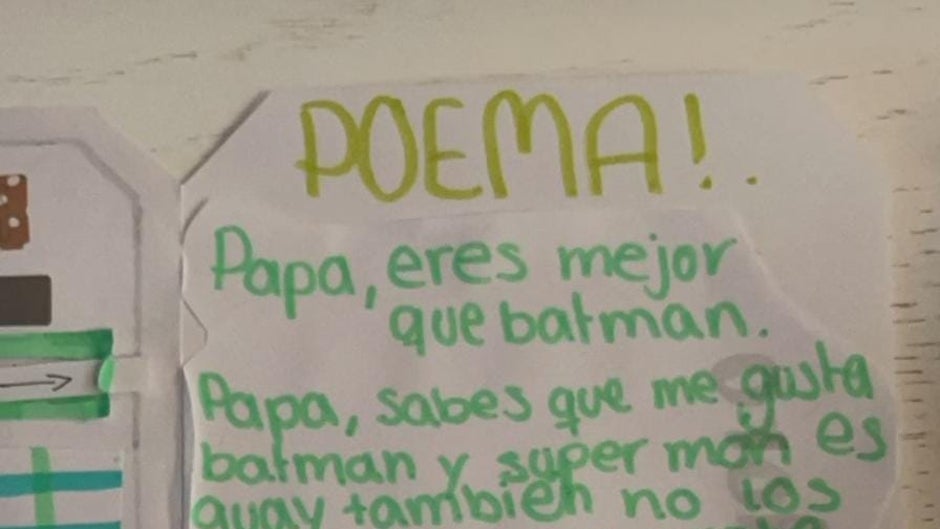 POEMA!.
Papa, eres mejor
que batman.
Papa, sabes que me gusta
batman y super mon es
guay también no los